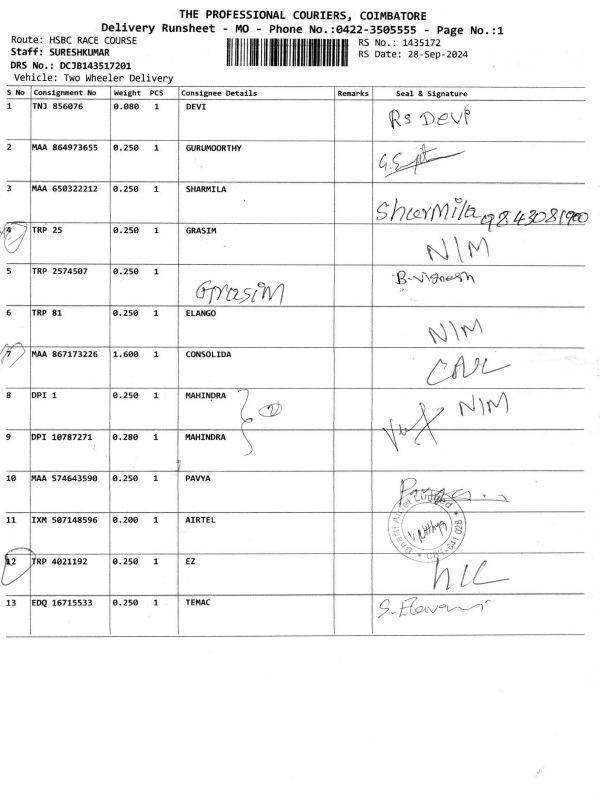 THE PROFESSIONAL COURIERS, COIMBATORE
Delivery Runsheet - MO - Phone No.:0422-3505555 - Page No.:1
Route: HSBC RACE COURSE
RS No.: 1435172
Staff: SURESHKUMAR
RS Date: 28-Sep-2024
DRS No.: DCJB143517201
Vehicle: Two Wheeler Delivery
S No Consignment No Weight PCS Consignee Details Remarks Seal & Signature
1 TNJ 856076 0.080 1 DEVI RS DEVI
2 MAA 864973655 0.250 1 GURUMOORTHY
3 MAA 650322212 0.250 1 SHARMILA Sharmila 9843081900
4 TRP 25 0.250 1 GRASIM N/M
5 TRP 2574507 0.250 1 GrasiM B.Vignesh
6 TRP 81 0.250 1 ELANGO N/M
7 MAA 867173226 1.600 1 CONSOLIDA
8 DPI 1 0.250 1 MAHINDRA N/M
9 DPI 10787271 0.280 1 MAHINDRA
10 MAA 574643590 0.250 1 PAVYA
11 IXM 507148596 0.200 1 AIRTEL Bharti Airtel Limited CBE-641 028
12 TRP 4021192 0.250 1 EZ
13 EDQ 16715533 0.250 1 TEMAC